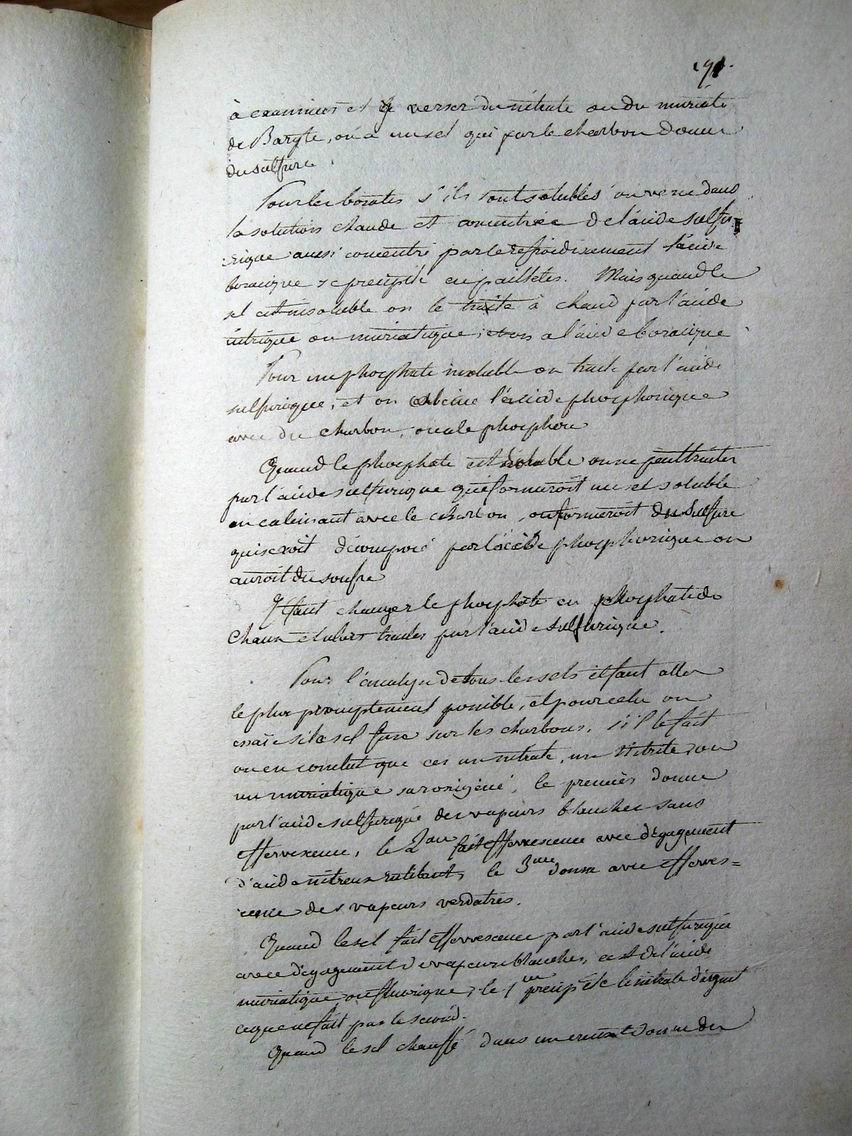 à examiner et y verser du nitrate ou du muriate
de Baryte, on a un sel qui par le charbon donne
du sulfure.
Pour les borates s'ils sont solubles on verse dans
la solution chaude et concentrée de l'acide sulfu-
rique aussi concentré par le refroidissement l'acide
boracique se precipite en paillettes. Mais quand le
sel est insoluble on le traite à chaud par l'acide
nitrique ou muriatique; et on a l'acide boracique
Pour un phosphate insoluble on traite par l'acide
sulfurique, et on calcine l'acide phosphorique
avec du charbon, on a le phosphore
Quand le phosphate est soluble on ne peut traiter
par l'acide sulfurique qui formeroit un sel soluble
en calcinant avec le charbon, on formeroit du sulfure
qui seroit décomposé par l'acide phosphorique on
auroit du soufre
Il faut changer le phosphate en phosphate de
Chaux et alors traiter par l'acide sulfurique.
Pour l'analyse de tous les sels il faut aller
le plus promptement possible, et pour cela on
essaie si le sel fuse sur les charbons, s'il le fait
on en conclut que c'est un nitrate, un nitrite, ou
un muriatique suroxigéné, le premier donne
par l'acide sulfurique des vapeurs blanches sans
effervescence, le 2me fait effervescence avec dégagement
d'acide nitreux rutilant, le 3me donne avec efferves=
cence des vapeurs verdatres.
Quand le sel fait effervescence par l'acide sulfurique
avec dégagement de vapeurs blanches, c'est de l'acide
muriatique ou fluorique, le 1er précipite le nitrate d'argent
ce que ne fait pas le second.
Quand le sel chauffé dans un creuset donne des